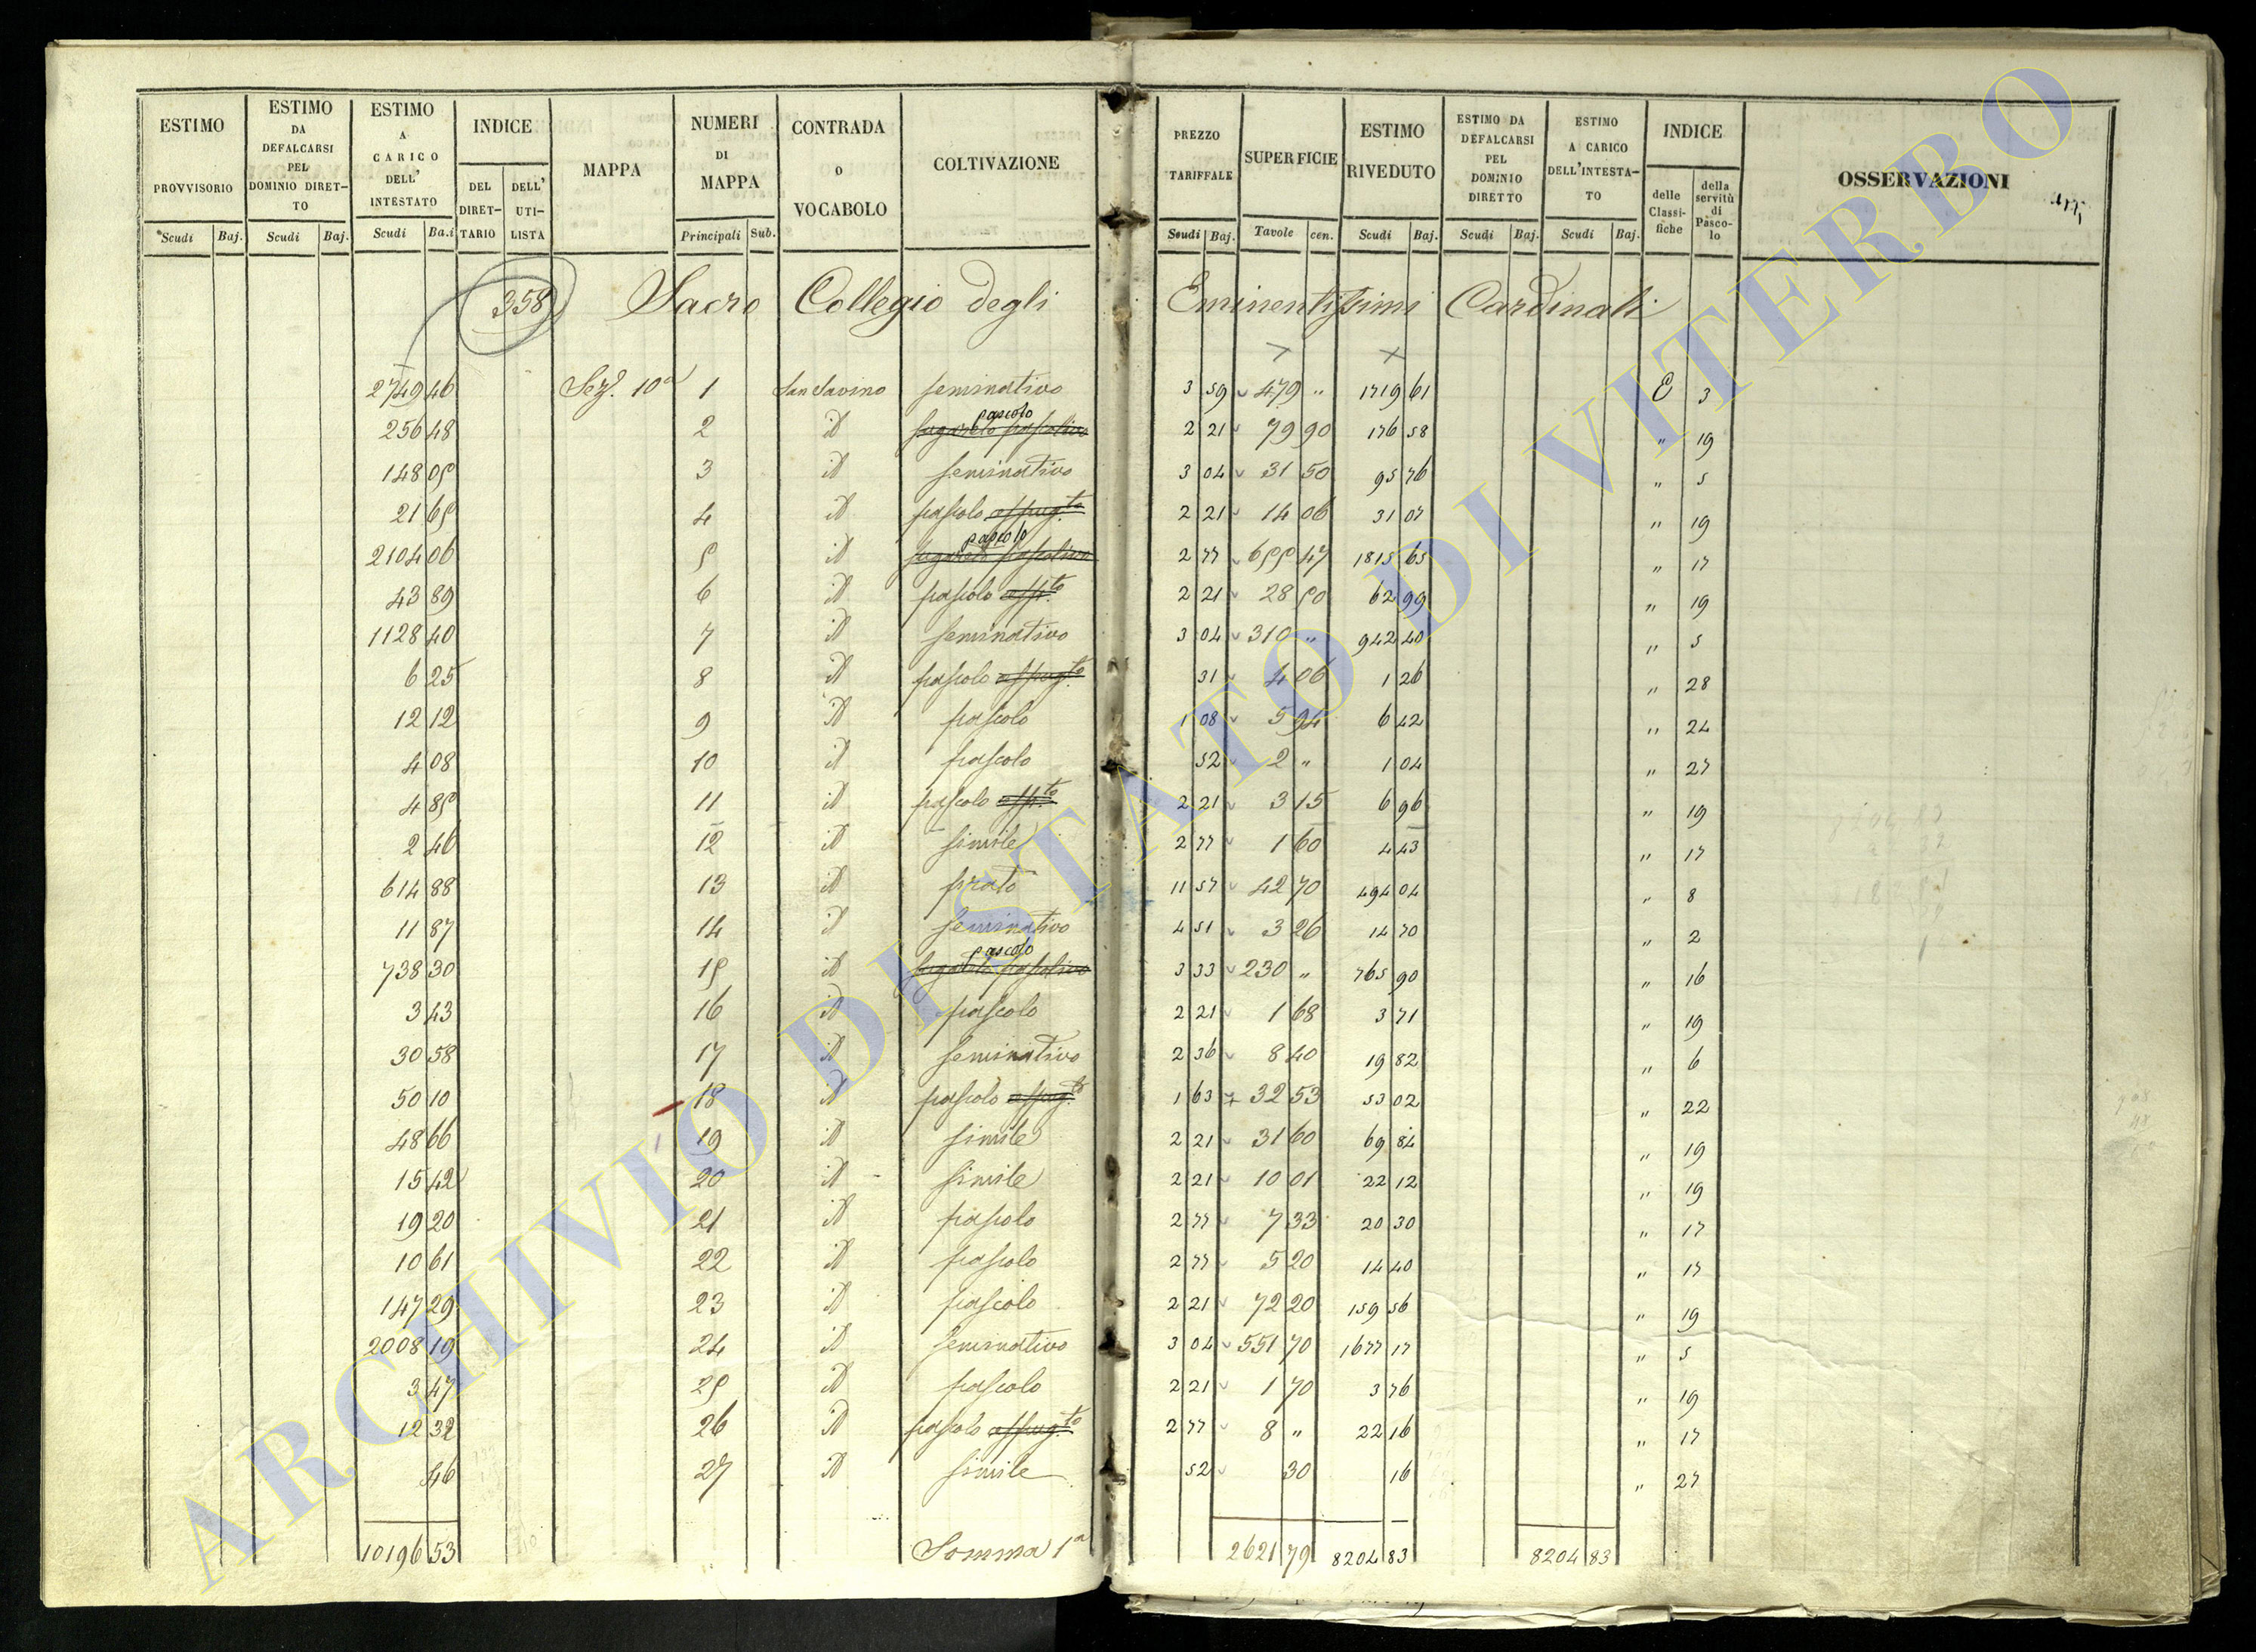 ESTIMO PROVVISORIO Scudi Baj.
ESTIMO DA DEFALCARSI PEL DOMINIO DIRET-TO Scudi Baj.
ESTIMO A CARICO DELL' INTESTATO Scudi Ba.i
INDICE DEL DIRET-TARIO DELL' UTI-LISTA
MAPPA
NUMERI DI MAPPA Principali Sub.
CONTRADA o VOCABOLO
COLTIVAZIONE
PREZZO TARIFFALE Scudi Baj.
SUPERFICIE Tavole cen.
ESTIMO RIVEDUTO Scudi Baj.
ESTIMO DA DEFALCARSI PEL DOMINIO DIRETTO Scudi Baj.
ESTIMO A CARICO DELL'INTESTA-TO Scudi Baj.
INDICE delle Classi-fiche della servitù di Pasco-lo
OSSERVAZIONI
358 Sacro Collegio degli Eminentissimi Cardinali
2749 46 Sez.e 10a 1 San Savino seminativo 3 59 479 " 1719 61 E 3
256 48 2 id sugareto pascolivo pascolo 2 21 79 90 176 58 " 19
148 05 3 id seminativo 3 04 31 50 95 76 " 5
21 65 4 id pascolo assug.to 2 21 14 06 31 07 " 19
2104 06 5 id sugareto pascolivo pascolo 2 77 655 47 1815 65 " 17
43 89 6 id pascolo ass.to 2 21 28 50 62 99 " 19
1128 40 7 id seminativo 3 04 310 " 942 40 " 5
6 25 8 id pascolo assug.to 31 4 06 1 26 " 28
12 12 9 id pascolo 1 08 5 94 6 42 " 24
4 08 10 id pascolo 52 2 " 1 04 " 27
4 85 11 id pascolo ass.to 2 21 3 15 6 96 " 19
2 46 12 id simile 2 77 1 60 4 43 " 17
614 88 13 id prato 11 57 42 70 494 04 " 8
11 87 14 id seminativo 4 51 3 26 14 70 " 2
738 30 15 id sugareto pascolivo pascolo 3 33 230 " 765 90 " 16
3 43 16 id pascolo 2 21 1 68 3 71 " 19
30 58 17 id seminativo 2 36 8 40 19 82 " 6
50 10 18 id pascolo assug.to 1 63 32 53 53 02 " 22
48 66 19 id simile 2 21 31 60 69 84 " 19
15 42 20 id simile 2 21 10 01 22 12 " 19
19 20 21 id pascolo 2 77 7 33 20 30 " 17
10 61 22 id pascolo 2 77 5 20 14 40 " 17
147 29 23 id pascolo 2 21 72 20 159 56 " 19
2008 19 24 id seminativo 3 04 551 70 1677 17 " 5
3 47 25 id pascolo 2 21 1 70 3 76 " 19
12 32 26 id pascolo assug.to 2 77 8 " 22 16 " 17
46 27 id simile 52 30 16 " 27
10196 53 Somma 1a 2621 79 8204 83 8204 83
ARCHIVIO DI STATO DI VITERBO